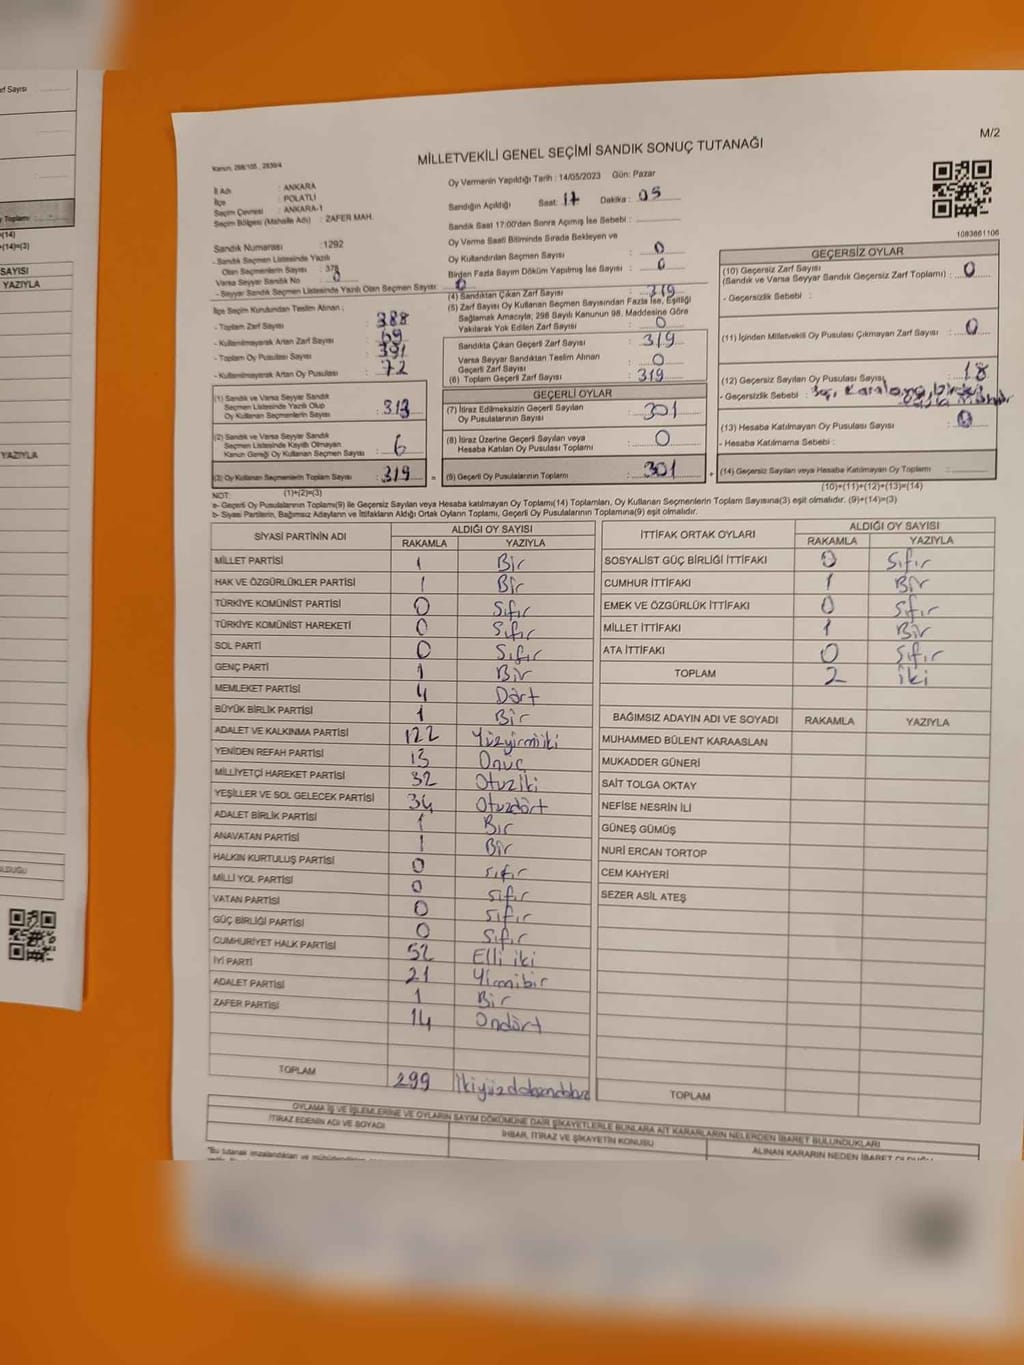 rf Sayısı
y Toplamı :
=(14)
+(14)=(3)
SAYISI
YAZIYLA
YAZIYLA
M/2
MİLLETVEKİLİ GENEL SEÇİMİ SANDIK SONUÇ TUTANAĞI
Kanun, 298/105 , 2839/4
İl Adı : ANKARA
İlçe : POLATLI
Seçim Çevresi : ANKARA-1
Seçim Bölgesi (Mahalle Adı) : ZAFER MAH.
Oy Vermenin Yapıldığı Tarih : 14/05/2023 Gün: Pazar
Sandığın Açıldığı Saat: 17 Dakika : 05
Sandık Saat 17:00'dan Sonra Açılmış İse Sebebi :
Oy Verme Saati Bitiminde Sırada Bekleyen ve
Oy Kullandırılan Seçmen Sayısı : 0
Birden Fazla Sayım Döküm Yapılmış İse Sayısı : 0
1083661106
Sandık Numarası :1292
- Sandık Seçmen Listesinde Yazılı
Olan Seçmenlerin Sayısı : 378
Varsa Seyyar Sandık No : 0
- Seyyar Sandık Seçmen Listesinde Yazılı Olan Seçmen Sayısı : 0
İlçe Seçim Kurulundan Teslim Alınan ;
- Toplam Zarf Sayısı : 388
- Kullanılmayarak Artan Zarf Sayısı : 69
- Toplam Oy Pusulası Sayısı : 391
- Kullanılmayarak Artan Oy Pusulası : 72
(1) Sandık ve Varsa Seyyar Sandık
Seçmen Listesinde Yazılı Olup
Oy Kullanan Seçmenlerin Sayısı : 313
(2) Sandık ve Varsa Seyyar Sandık
Seçmen Listesinde Kayıtlı Olmayan
Kanun Gereği Oy Kullanan Seçmen Sayısı : 6
(3) Oy Kullanan Seçmenlerin Toplam Sayısı : 319
(4) Sandıktan Çıkan Zarf Sayısı : 319
(5) Zarf Sayısı Oy Kullanan Seçmen Sayısından Fazla İse, Eşitliği
Sağlamak Amacıyla, 298 Sayılı Kanunun 98. Maddesine Göre
Yakılarak Yok Edilen Zarf Sayısı : 0
Sandıkta Çıkan Geçerli Zarf Sayısı : 319
Varsa Seyyar Sandıktan Teslim Alınan
Geçerli Zarf Sayısı : 0
(6) Toplam Geçerli Zarf Sayısı : 319
GEÇERLİ OYLAR
(7) İtiraz Edilmeksizin Geçerli Sayılan
Oy Pusulalarının Sayısı : 301
(8) İtiraz Üzerine Geçerli Sayılan veya
Hesaba Katılan Oy Pusulası Toplamı : 0
(9) Geçerli Oy Pusulalarının Toplamı : 301
GEÇERSİZ OYLAR
(10) Geçersiz Zarf Sayısı
(Sandık ve Varsa Seyyar Sandık Geçersiz Zarf Toplamı) : 0
- Geçersizlik Sebebi :
(11) İçinden Milletvekili Oy Pusulası Çıkmayan Zarf Sayısı : 0
(12) Geçersiz Sayılan Oy Pusulası Sayısı : 18
- Geçersizlik Sebebi :
(13) Hesaba Katılmayan Oy Pusulası Sayısı : 0
- Hesaba Katılmama Sebebi :
(14) Geçersiz Sayılan veya Hesaba Katılmayan Oy Toplamı :
(10)+(11)+(12)+(13)=(14)
NOT: (1)+(2)=(3)
a- Geçerli Oy Pusulalarının Toplamı(9) ile Geçersiz Sayılan veya Hesaba katılmayan Oy Toplamı(14) Toplamları, Oy Kullanan Seçmenlerin Toplam Sayısına(3) eşit olmalıdır. (9)+(14)=(3)
b- Siyasi Partilerin, Bağımsız Adayların ve İttifakların Aldığı Ortak Oyların Toplamı, Geçerli Oy Pusulalarının Toplamına(9) eşit olmalıdır.
SİYASİ PARTİNİN ADI ALDIĞI OY SAYISI
RAKAMLA YAZIYLA
MİLLET PARTİSİ 1 Bir
HAK VE ÖZGÜRLÜKLER PARTİSİ 1 Bir
TÜRKİYE KOMÜNİST PARTİSİ 0 Sıfır
TÜRKİYE KOMÜNİST HAREKETİ 0 Sıfır
SOL PARTİ 0 Sıfır
GENÇ PARTİ 1 Bir
MEMLEKET PARTİSİ 4 Dört
BÜYÜK BİRLİK PARTİSİ 1 Bir
ADALET VE KALKINMA PARTİSİ 122 Yüzyirmiiki
YENİDEN REFAH PARTİSİ 13 Onüç
MİLLİYETÇİ HAREKET PARTİSİ 32 Otuziki
YEŞİLLER VE SOL GELECEK PARTİSİ 34 Otuzdört
ADALET BİRLİK PARTİSİ 1 Bir
ANAVATAN PARTİSİ 1 Bir
HALKIN KURTULUŞ PARTİSİ 0 Sıfır
MİLLİ YOL PARTİSİ 0 Sıfır
VATAN PARTİSİ 0 Sıfır
GÜÇ BİRLİĞİ PARTİSİ 0 Sıfır
CUMHURİYET HALK PARTİSİ 52 Elli iki
İYİ PARTİ 21 Yirmibir
ADALET PARTİSİ 1 Bir
ZAFER PARTİSİ 14 Ondört
TOPLAM 299
İTTİFAK ORTAK OYLARI ALDIĞI OY SAYISI
RAKAMLA YAZIYLA
SOSYALİST GÜÇ BİRLİĞİ İTTİFAKI 0 Sıfır
CUMHUR İTTİFAKI 1 Bir
EMEK VE ÖZGÜRLÜK İTTİFAKI 0 Sıfır
MİLLET İTTİFAKI 1 Bir
ATA İTTİFAKI 0 Sıfır
TOPLAM 2 İki
BAĞIMSIZ ADAYIN ADI VE SOYADI RAKAMLA YAZIYLA
MUHAMMED BÜLENT KARAASLAN
MUKADDER GÜNERİ
SAİT TOLGA OKTAY
NEFİSE NESRİN İLİ
GÜNEŞ GÜMÜŞ
NURİ ERCAN TORTOP
CEM KAHYERİ
SEZER ASİL ATEŞ
TOPLAM
OYLAMA İŞ VE İŞLEMLERİNE VE OYLARIN SAYIM DÖKÜMÜNE DAİR ŞİKAYETLERLE BUNLARA AİT KARARLARIN NELERDEN İBARET BULUNDUKLARI
İTİRAZ EDENİN ADI VE SOYADI İHBAR, İTİRAZ VE ŞİKAYETİN KONUSU ALINAN KARARIN NEDEN İBARET OLDUĞU